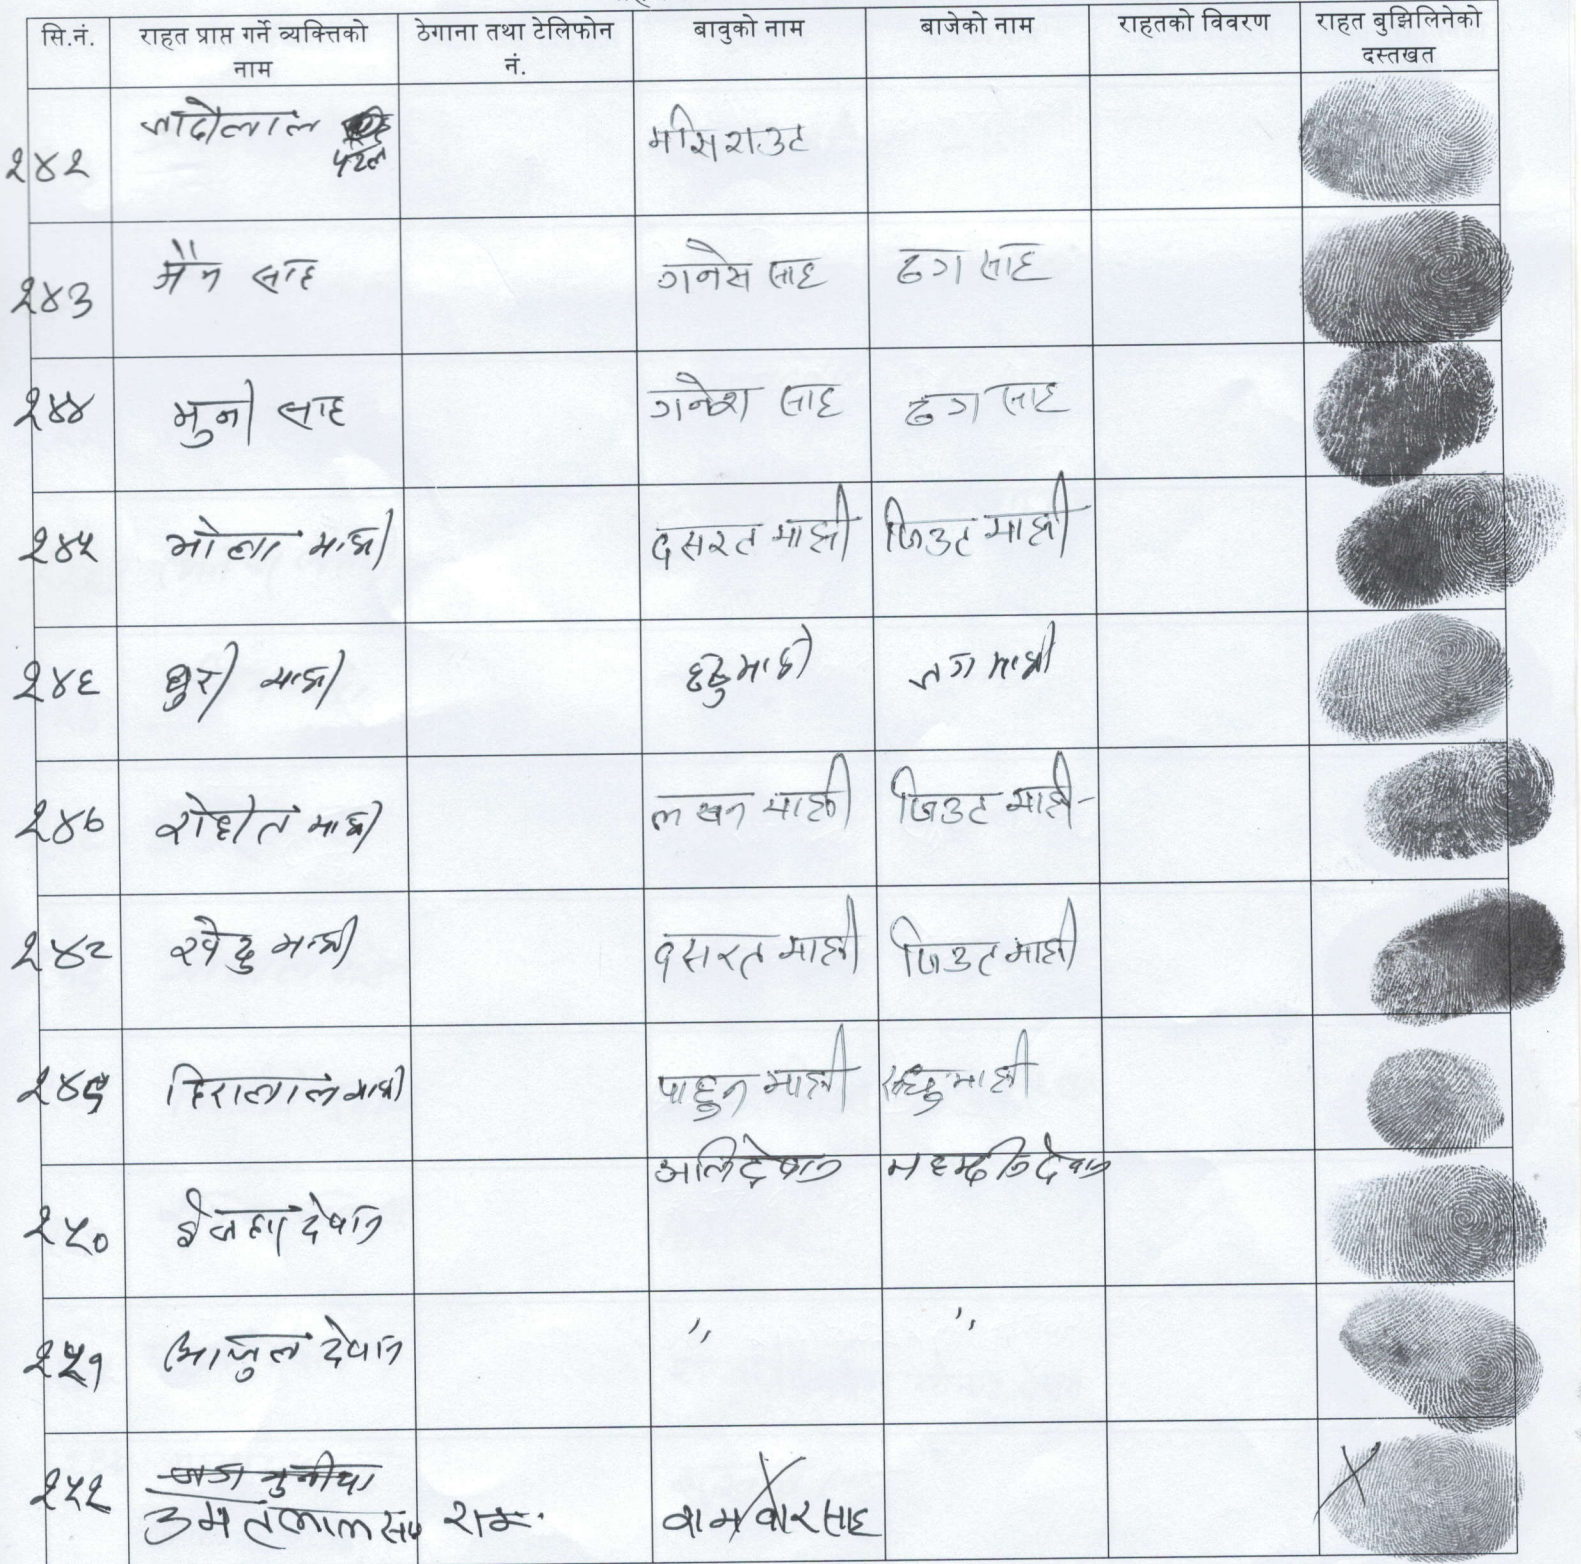 सि.नं. राहत प्राप्त गर्ने व्यक्तिको नाम ठेगाना तथा टेलिफोन नं. बाबुको नाम बाजेको नाम राहतको विवरण राहत बुझिलिनेको दस्तखत
२४२ जादोलाल पटेल मीसि राउट
२४३ मैन साह गनेस साह ढग साह
२४४ मुनी साह गनेश साह ढग साह
२४५ भोला माझी दसरत माझी जिउट माझी
२४६ धुरी माझी माझी जग माझी
२४७ रोहीत माझी लखन माझी जिउट माझी
२४८ खेदु माझी दसरत माझी जिउट माझी
२४९ हिरालाल माझी पाहुन माझी माझी
२५० देवान अलि देवान देवान
२५१ देवान " "
२५२ साह